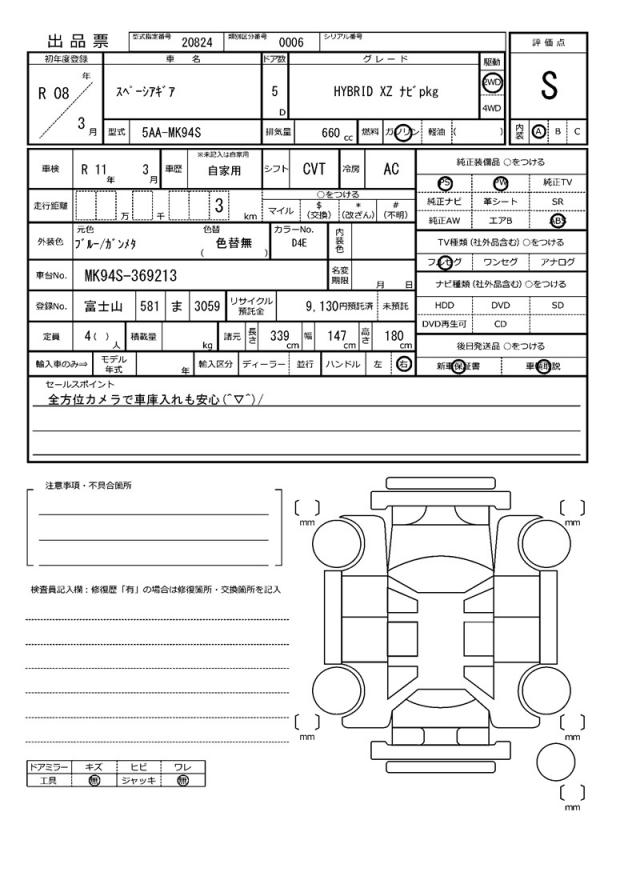 出品票
型式指定番号 20824 類別区分番号 0006 シリアル番号
評価点
S
内装 A B C
初年度登録 車名 ドア数 グレード 駆動
R 08 年 3 月
スペーシアギア
5 D
HYBRID XZ ナビpkg
2WD
4WD
型式 5AA-MK94S 排気量 660 cc 燃料 ガソリン 軽油 ( )
車検 R 11 年 3 月 車歴 ※未記入は自家用 自家用 シフト CVT 冷房 AC
走行距離 万 千 3 km
○をつける
マイル $(交換) *(改ざん) #(不明)
外装色 元色 ブルー/ガンメタ 色替 ( 色替無 ) カラーNo. D4E 内装色
車台No. MK94S-369213 名変期限 月 日
登録No. 富士山 581 ま 3059 リサイクル預託金 9,130円預託済 未預託
定員 4( ) 人 積載量 kg 諸元 長さ 339 cm 幅 147 cm 高さ 180 cm
輸入車のみ⇒ モデル年式 年 輸入区分 ディーラー 並行 ハンドル 左 右
純正装備品 ○をつける
PS PW 純正TV
純正ナビ 革シート SR
純正AW エアB ABS
TV種類 (社外品含む) ○をつける
フルセグ ワンセグ アナログ
ナビ種類 (社外品含む) ○をつける
HDD DVD SD
DVD再生可 CD
後日発送品 ○をつける
新車保証書 車輌取説
セールスポイント
全方位カメラで車庫入れも安心(^▽^)/
注意事項・不具合箇所
検査員記入欄：修復歴「有」の場合は修復箇所・交換箇所を記入
ドアミラー キズ ヒビ ワレ
工具 無 ジャッキ 無
mm
mm
mm
mm
mm